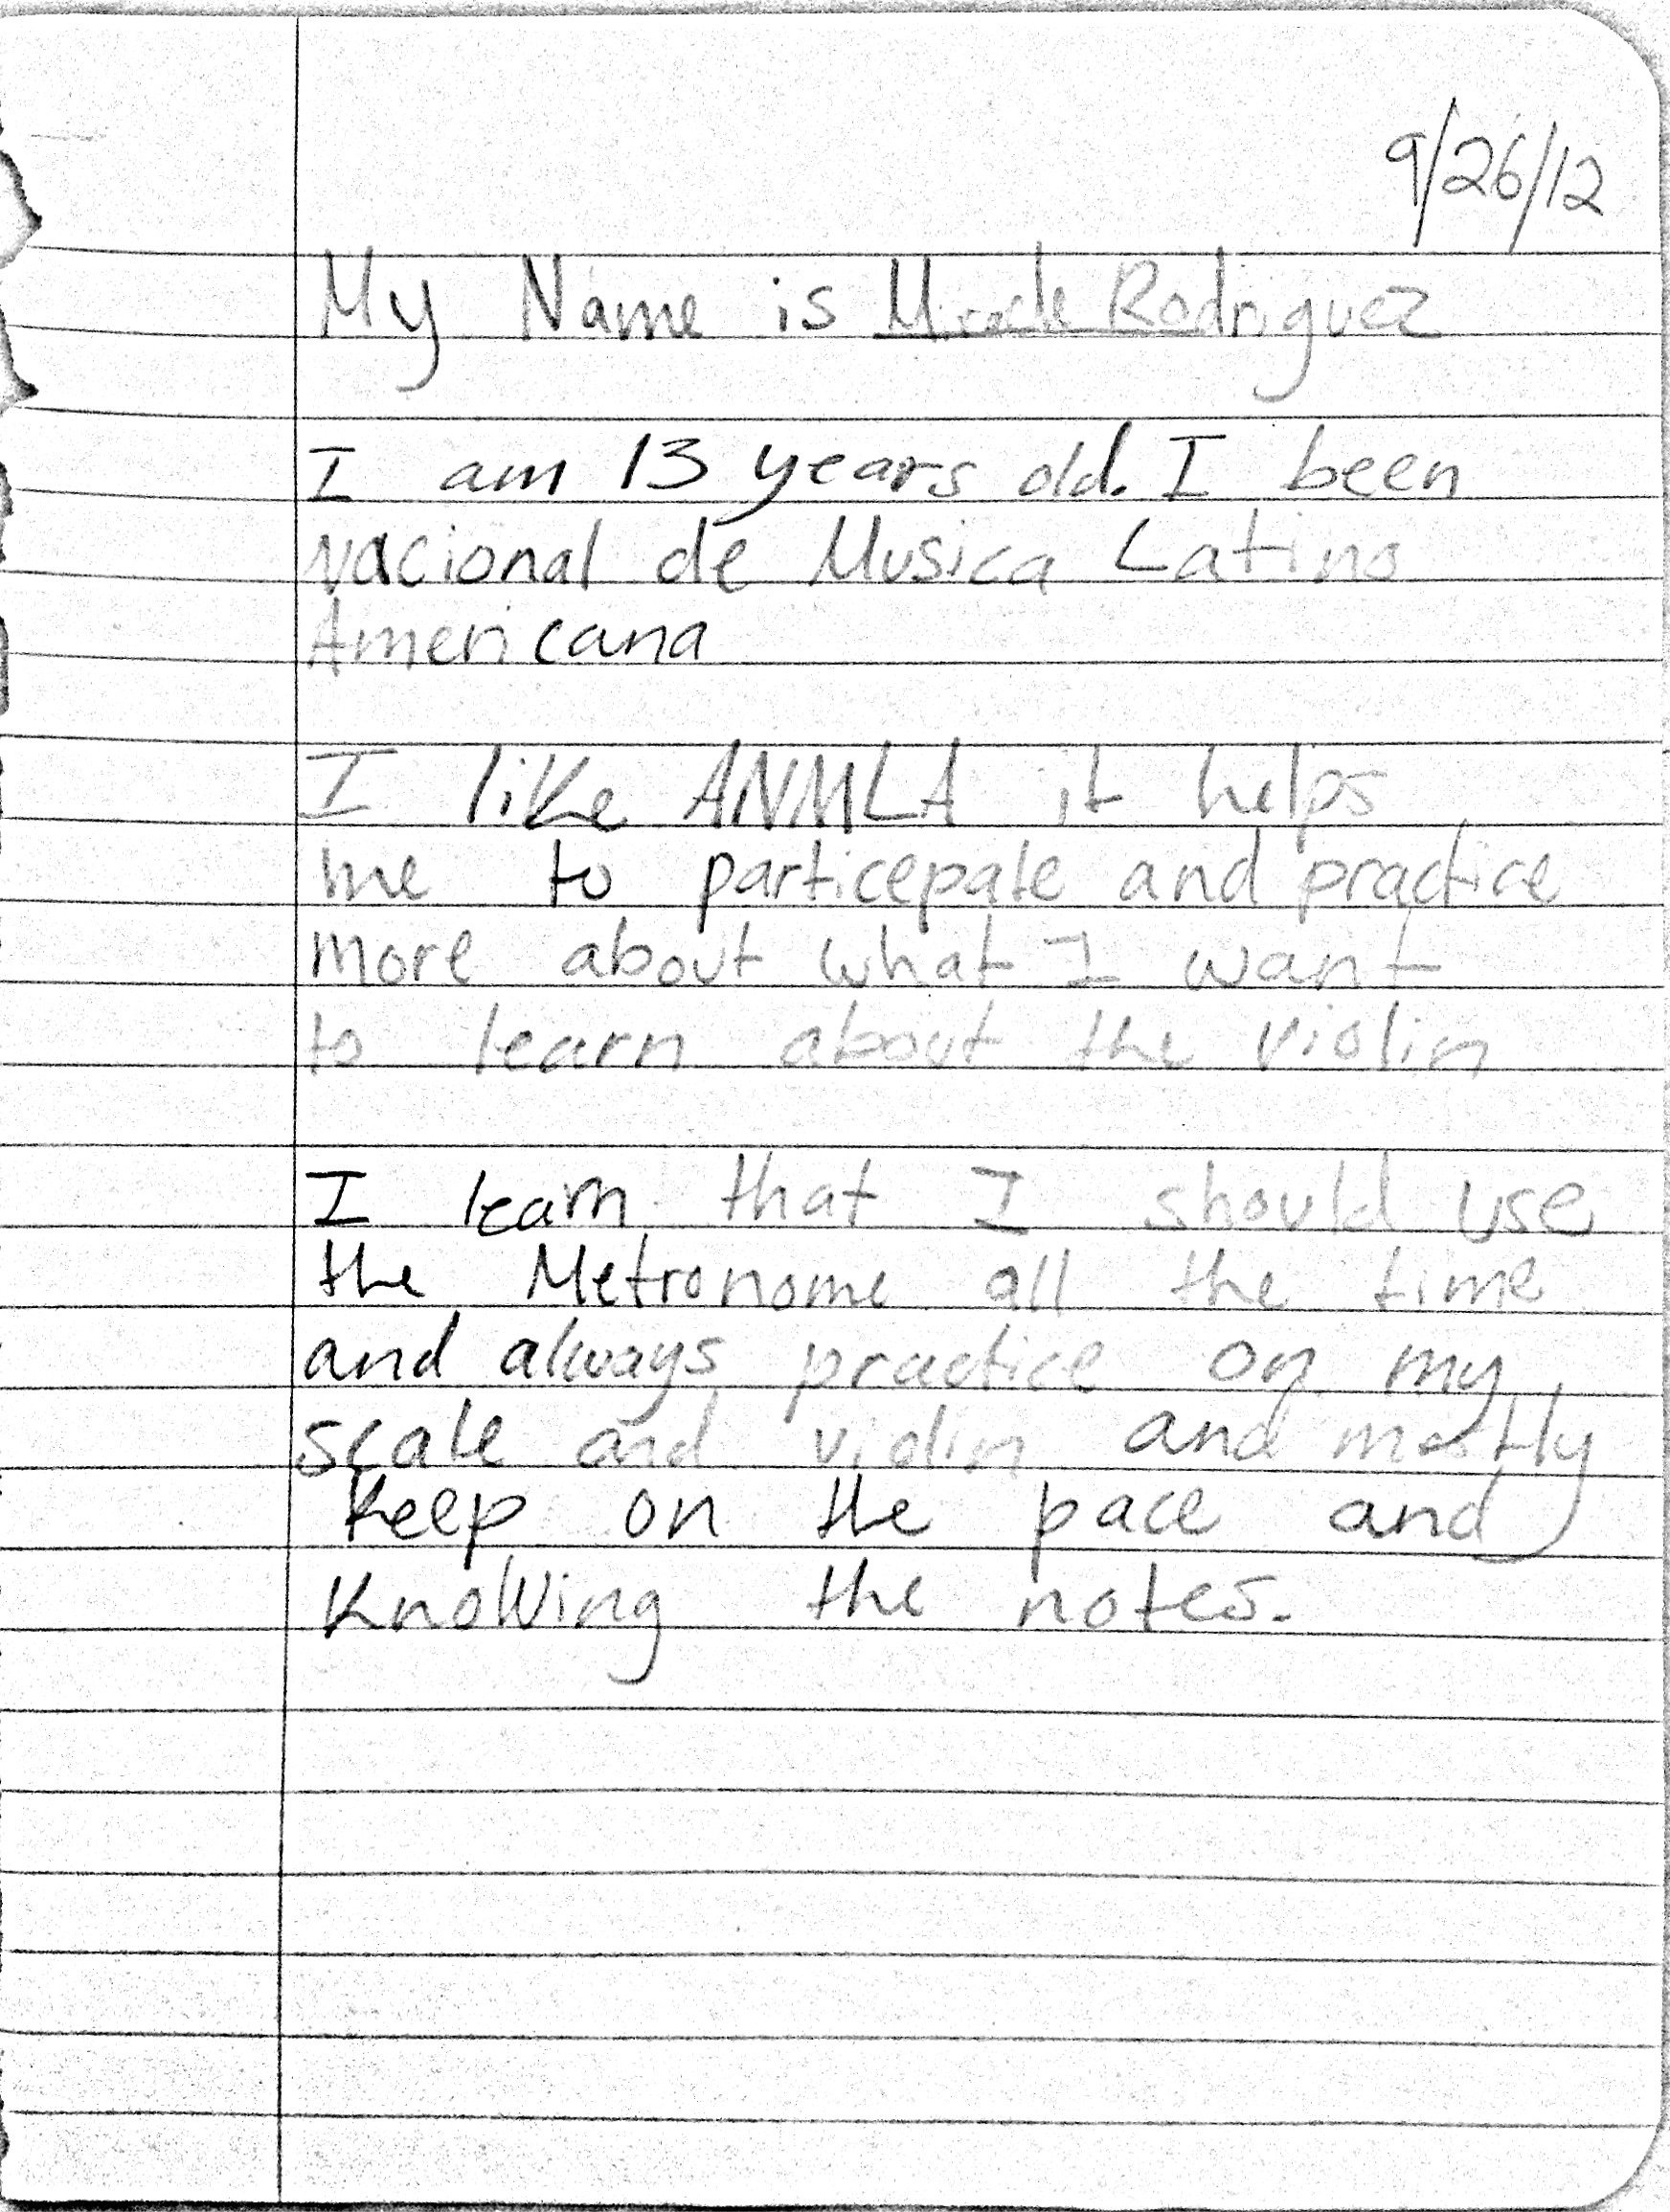 9/26/12
My Name is Miracle Rodriguez
I am 13 years old. I been
Nacional de Musica Latino
Americana
I like ANMLA it helps
me to particepate and practice
more about what I want
to learn about the violin
I learn that I should use
the Metronome all the time
and always practice on my
scale and violin and mostly
Keep on the pace and
Knowing the notes.